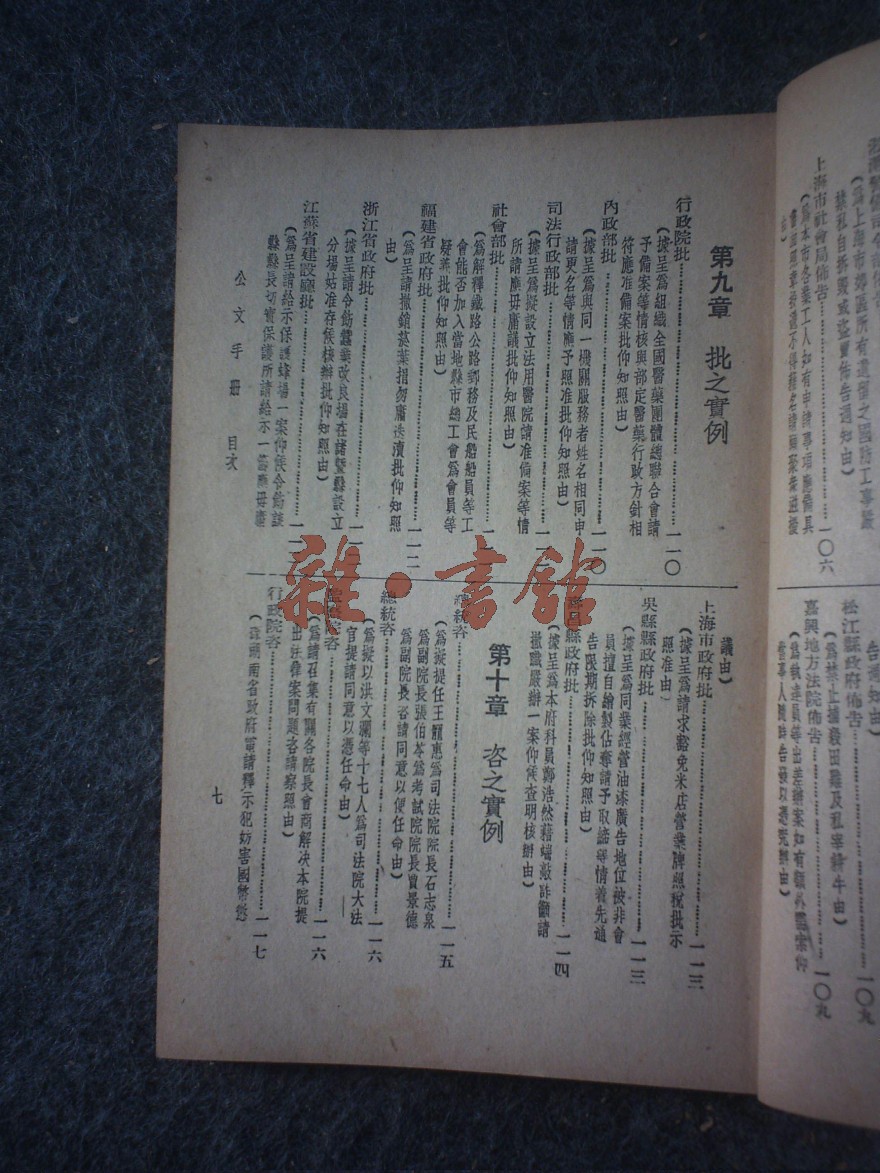 第九章　批之實例
行政院批……一一〇
（據呈爲組織全國醫藥團體總聯合會請
予備案等情核與部定醫藥行政方針相
符應准備案批仰知照由）
內政部批……一一〇
（據呈爲與同一機關服務者姓名相同申
請更名等情應予照准批仰知照由）
司法行政部批……一一
（據呈爲擬設立法用醫院請准備案等情
所請應毋庸議批仰知照由）
社會部批……一一
（爲解釋鐵路公路郵務及民船船員等工
會能否加入當地縣市總工會爲會員等
疑義批仰知照由）
福建省政府批……一一二
（爲呈請撤銷菸葉捐勿庸瀆批仰知照
由）
浙江省政府批……一一
（據呈請令飭蠶業改良場在諸暨縣設立
分場姑准存候核辦批仰知照由）
江蘇省建設廳批……一一
（爲呈請給示保護蜂場一案仰候令飭該
縣縣長切實保護所請給示一節應毋庸
議由）
上海市政府批……一一三
（據呈爲請求豁免米店營業牌照稅批示
照准由）
吳縣縣政府批……一一三
（據呈爲同業經管油漆廣告地位被非會
員擅自繪製佔奪請予取諦等情着先通
告限期拆除批仰知照由）
縣政府批……一一四
（據呈爲本府科員鄭浩然藉端敲詐籲請
撤職嚴辦一案仰候查明核辦由）
第十章　咨之實例
總統咨……一一五
（爲擬提任王寵惠爲司法院院長石志泉
爲副院長張伯苓爲考試院院長賈景德
爲副院長咨請同意以便任命由）
總統咨……一一六
（爲擬以洪文瀾等十七人爲司法院大法
官提請同意以憑任命由）
院咨……一一六
（爲請召集有關各院長會商解决本院提
出法律案問題咨請察照由）
行政院咨……一一七
南省政府電請釋示犯妨害國幣懲
公文手册　目次
七
上海市社會局佈告……一〇六
（爲本市各業工人如有申請事項應備具
松江縣政府佈告……一〇九
嘉興地方法院佈告……一〇九